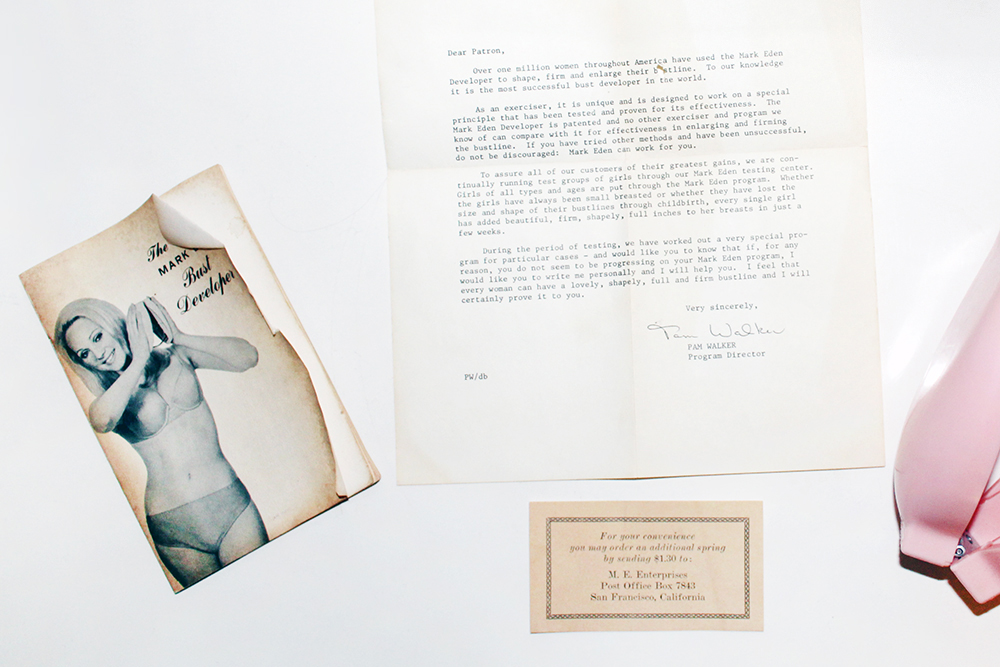 The
MARK
Bust
Developer
Dear Patron,
Over one million women throughout America have used the Mark Eden
Developer to shape, firm and enlarge their b stline. To our knowledge
it is the most successful bust developer in the world.
As an exerciser, it is unique and is designed to work on a special
principle that has been tested and proven for its effectiveness. The
Mark Eden Developer is patented and no other exerciser and program we
know of can compare with it for effectiveness in enlarging and firming
the bustline. If you have tried other methods and have been unsuccessful,
do not be discouraged: Mark Eden can work for you.
To assure all of our customers of their greatest gains, we are con-
tinually running test groups of girls through our Mark Eden testing center.
Girls of all types and ages are put through the Mark Eden program. Whether
the girls have always been small breasted or whether they have lost the
size and shape of their bustlines through childbirth, every single girl
has added beautiful, firm, shapely, full inches to her breasts in just a
few weeks.
During the period of testing, we have worked out a very special pro-
gram for particular cases - and would like you to know that if, for any
reason, you do not seem to be progressing on your Mark Eden program, I
would like you to write me personally and I will help you. I feel that
every woman can have a lovely, shapely, full and firm bustline and I will
certainly prove it to you.
Very sincerely,
Pam Walker
PAM WALKER
Program Director
PW/db
For your convenience
you may order an additional spring
by sending $1.30 to:
M. E. Enterprises
Post Office Box 7843
San Francisco, California